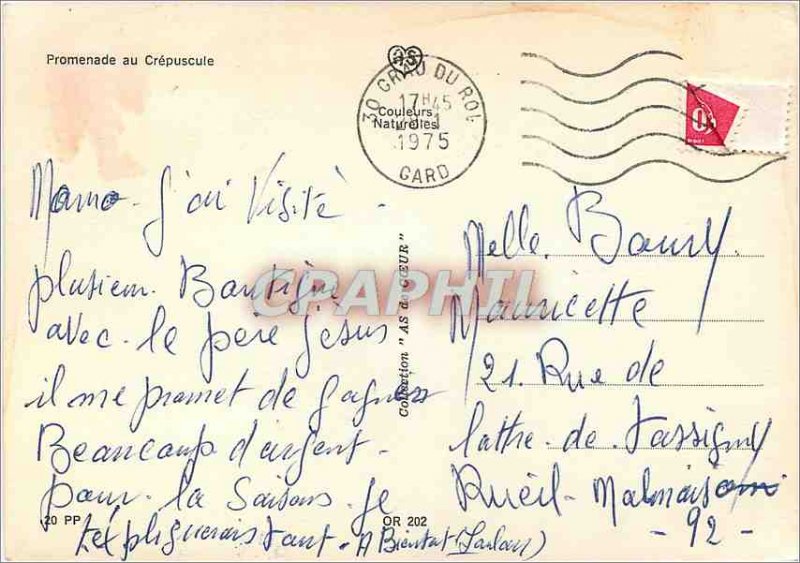 Promenade au Crépuscule
AS
30 GRAU DU ROI
17H45
1975
GARD
Couleurs
Naturelles
Momo - J'ai Visité -
plusieur. Boutique
avec - le père Jésus
il me promet de gagner
Beaucoup d'argent -
pour - la Saisons - Je
t'expliquerais tout - A Bientot
20 PP
OR 202
Collection "AS de CŒUR"
CPAPHIL
Melle. Boury
Mauricette
21. Rue de
lattre - de - Tassigny
Rueil - Malmaison
- 92 -